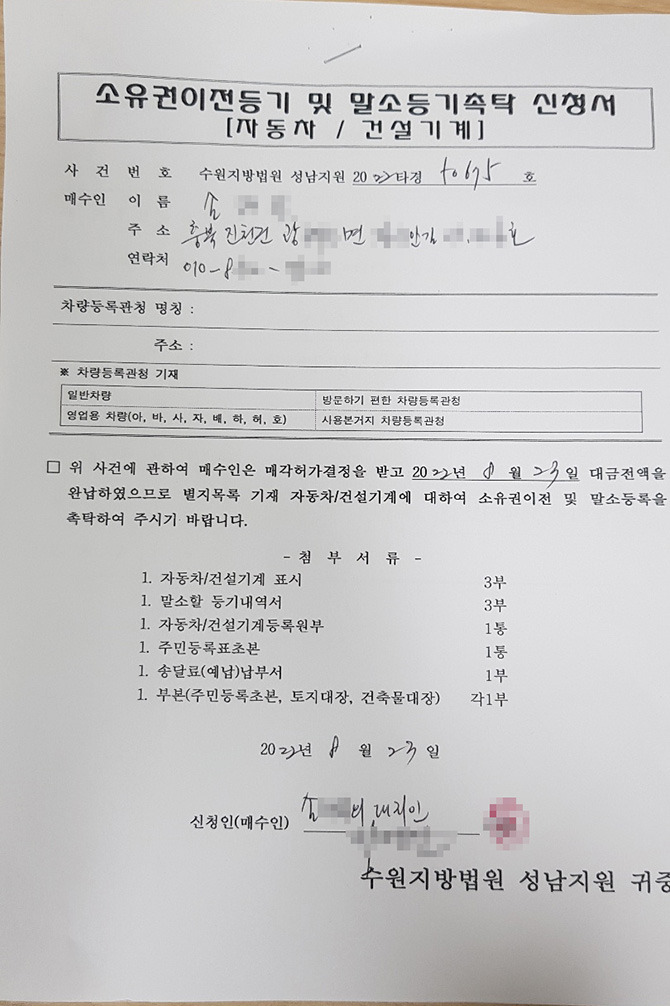 소유권이전등기 및 말소등기촉탁 신청서
[자동차 / 건설기계]
사 건 번 호 수원지방법원 성남지원 2022타경 호
매수인 이 름
주 소 충북 진천군 광 면 안길 호
연락처 010-8 -
차량등록관청 명칭 :
주소 :
※ 차량등록관청 기재
일반차량 방문하기 편한 차량등록관청
영업용 차량(아, 바, 사, 자, 배, 하, 허, 호) 사용본거지 차량등록관청
□ 위 사건에 관하여 매수인은 매각허가결정을 받고 2022년 8 월 23일 대금전액을
완납하였으므로 별지목록 기재 자동차/건설기계에 대하여 소유권이전 및 말소등록을
촉탁하여 주시기 바랍니다.
- 첨 부 서 류 -
1. 자동차/건설기계 표시 3부
1. 말소할 등기내역서 3부
1. 자동차/건설기계등록원부 1통
1. 주민등록표초본 1통
1. 송달료(예납)납부서 1부
1. 부본(주민등록초본, 토지대장, 건축물대장) 각1부
2022년 8 월 23 일
신청인(매수인) 의 대리인
수원지방법원 성남지원 귀중